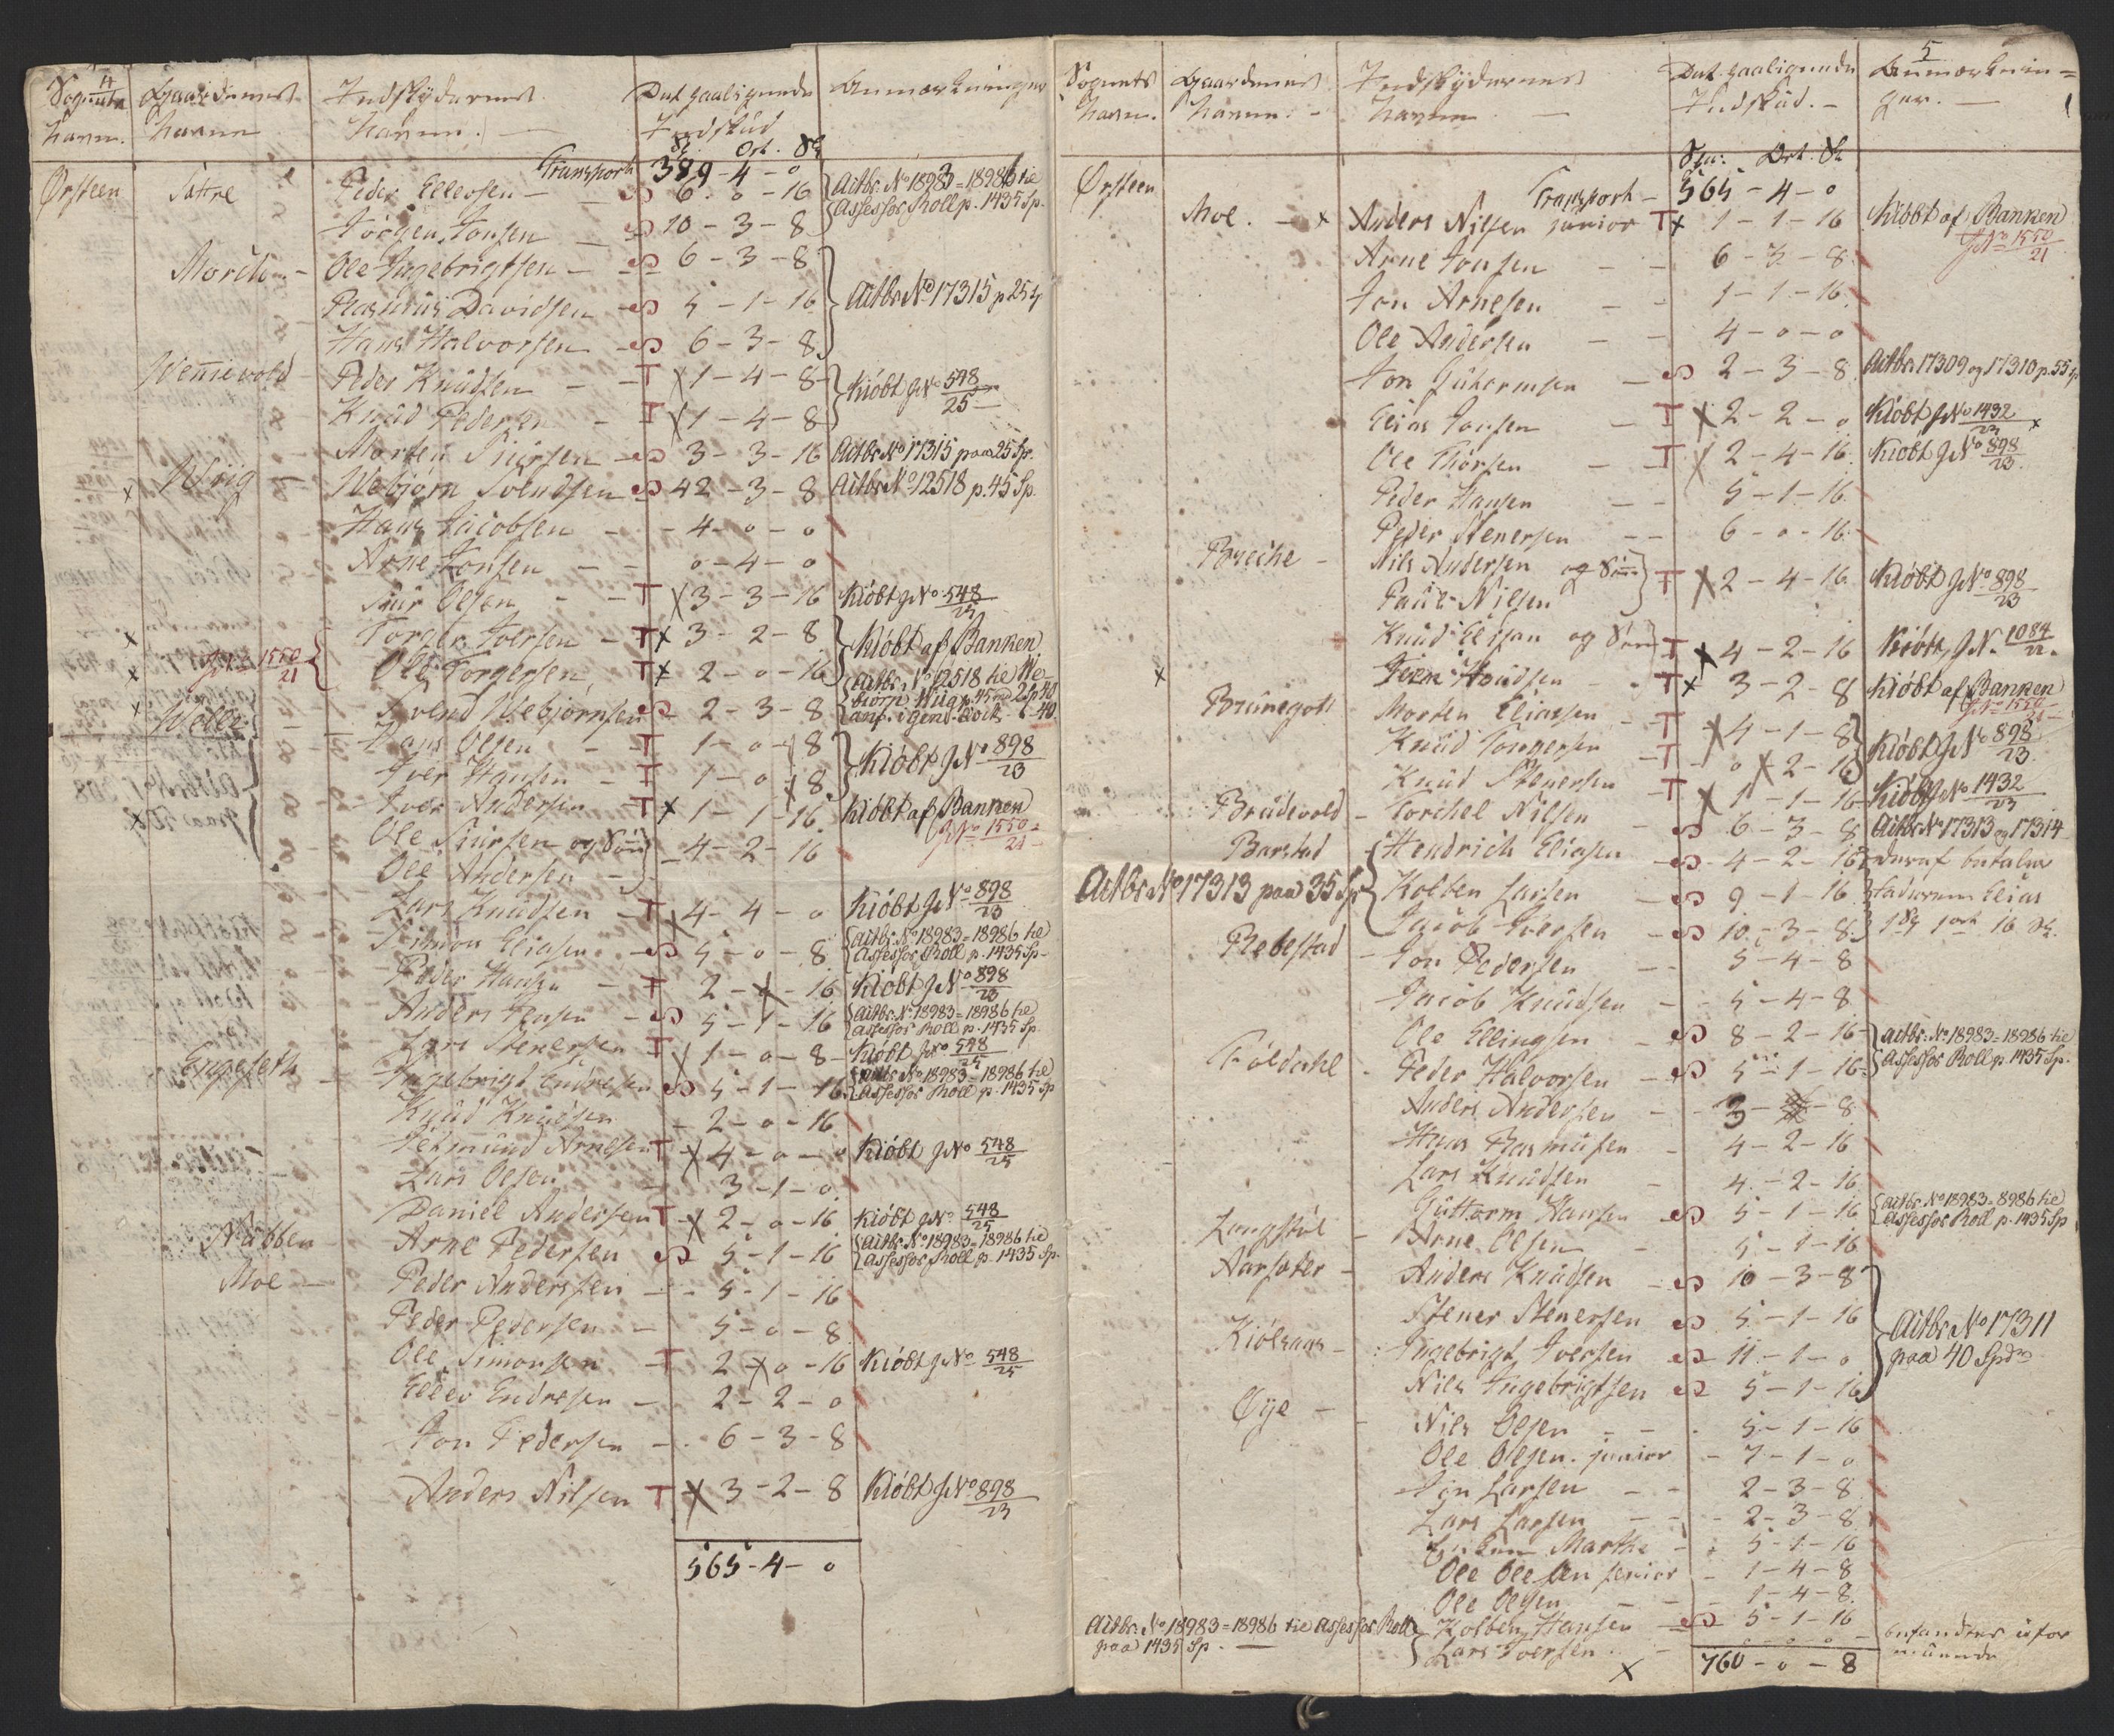 4
Sognets Navn. Gaardenes Navne Indskydernes Navne. Det paaliggende Indskud Anmærkninger
Sp. Ort. Sk.
Transport 389-4-0
Ørsteen Sætre Peder Ellevsen S 6-0-16 Actbr. No 18983=18986 til
Jørgen Jonsen S 10-3-8 Assessor Roll p. 1435 Sp.
Mork Ole Ingebrigtsen S 6-3-8
Rasmus Davidsen S 5-1-16 Actbr No 17315 p 25 Sp
Hans Halvorsen S 6-3-8
Wennievold Peder Knudsen T x 1-4-8 Kiöbt J No 548/25
Knud Pedersen T x 1-4-8
Morten Siursen S 3-3-16 Actbr No 17315 paa 25 Sp.
x Wiig Webjørn Svendsen S 42-3-8 Actbr No 12518 p. 45 Sp.
Hans Jacobsen 4-0-0
Arne Jonsen 0-4-0
Siur Olsen T x 3-3-16 Kiöbt J No 548/25
x Torger Iversen T x 3-2-8 Kiöbt af Banken
x J No 1550/21 Ole Torgersen T x 2-0-16
x Svend Webjørnsen S 2-3-8 Actbr. No 12518 til We-
biörn Wiig p. 45
Welle Hans Olsen T 1-0-x8 Kiöbt J No 898/23
Iver Hansen T 1-0-x8
x Iver Andersen T x 1-1-16 Kiöbt af Banken
J No 1550/21
Ole Siursen og Søn
Ole Andersen 4-2-16
Lars Knudsen T x 4-4-0 Kiöbt J No 898/23
Simon Eliasen S 5-0-8 Actbr. No 18983=18986 til
Assessor Roll p. 1435 Sp
Peder Hansen T 2-x-16 Kiöbt J No 898/23
Anders Jensen S 5-1-16 Actbr. No 18983=18986 til
Assessor Roll p. 1435 Sp
Lars Stenersen T x 1-0-8 Kiöbt J No 548/25
Engeseth Ingebrigt Endresen S 5-1-16 Actbr No 18983=18986 til
Assessor Roll p. 1435 Sp
Knud Knudsen 2-0-16
Jetmund Arnesen T x 4-0-0 Kiöbt J No 548/25
Lars Olsen 3-1-0
Daniel Andersen T x 2-0-16 Kiöbt J No 548/25
Nubben Arne Pedersen S 5-1-16 Actbr. No 18983=18986 til
Assessor Roll p. 1435 Sp.
Moe Peder Anderssen 5-1-16
Peder Pedersen 5-0-8
Ole Simonsen T 2 x 0-16 Kiöbt J No 548/25
Ellev Endresen 2-2-0
Jon Pedersen 6-3-8
Anders Nilsen T x 3-2-8 Kiöbt J No 898/23
565-4-0
5
Sognets Navn. Gaardenes Navne. Indskydernes Navne Det paaliggende Indskud. Anmærkninger.
Spe. Ort. Sk
Ørsteen Transport 565-4-0
Moe. x Anders Nilsen junior T x 1-1-16 Kiöbt af Banken
J No 1550/21
Arne Jonsen 6-3-8
Jon Arnesen 1-1-16
Ole Andersen 4-0-0
Jon Guttormsen S 2-3-8 Actbr. 17309 og 17310 p. 55 Sp
Elias Jonsen T x 2-2-0 Kiöbt J No 1432/23 x
Ole Thorsen T x 2-4-16 Kiöbt J No 898/23.
Peder Hansen 5-1-16
Peder Stenersen 6-0-16
Breche Nils Andersen og Søn
Paul Nilsen T x 2-4-16 Kiöbt J No 898/23
Knud Elisen og Søn T x 4-2-16 Kiöbt J N. 1084/22.
x Knudsen T x 3-2-8 Kiöbt af Banken
J No 1550/21
Brunegott Morten Eliassen T x 4-1-8 Kiöbt J No 898/23
Knud Torgersen T 0 x 2-16
Knud Stenersen T x 1-1-16 Kiöbt J No 1432/23
Brudevold Torchel Nilsen S 6-3-8 Actbr No 17313 og 17314
Barstad Hendrich Eliasen S 4-2-16 deraf betaler
Actbr No 17313 paa 35 Sp Kolben Larsen S 9-1-16 Elias
Jacob Iversen S 10-3-8 1 Sp 1 ort 16 sk.
Rebestad Jon Pedersen 5-4-8
Jacob Knudsen 5-4-8
Ole Ellingsen S 8-2-16 Actbr. No 18983=18986 til
Foldahl Peder Halvorsen S 5-1-16 Assessor Roll p. 1435 Sp.
Anders Andersen 3-8
Hans Rasmusen 4-2-16
Lars Knudsen 4-2-16
Guttorm Hansen S 5-1-16 Actbr. No 18983=8986 til
Assessor Roll p. 1435 Sp
Langstöl Arne Olsen 5-1-16
Aarsæter Anders Knudsen S 10-3-8
Stener Stenersen S 5-1-16 Actbr No 17311
Kiölsaas Ingebrigt Iversen S 11-1-0 paa 40 Spd
Nils Ingebrigtsen S 5-1-16
Øye Nils Olsen 5-1-16
Ole Olsen. junior 7-1-0
Jon Larsen 2-3-8
Lars Larsen 2-3-8
Enken Marthe 5-1-16
Ole Olesen senior 1-4-8
Ole Olsen 1-4-8
Actbr. No 18983=18986 til Assessor Roll Kolben Hansen S 5-1-16
paa 1435 Sp. Lars Iversen x 0 0 0 befindes ufor-
muende
760-0-8